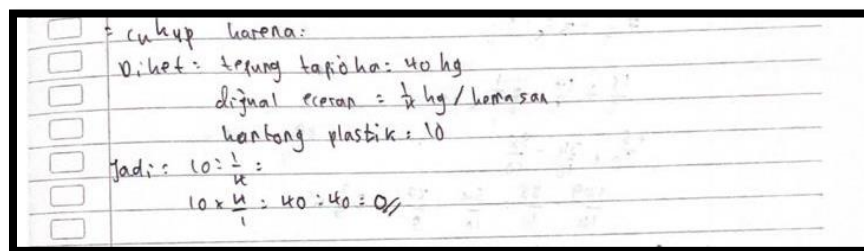 = cukup karena:
Diket = tepung tapioka = 40 kg
dijual eceran = 1/4 kg / kemasan.
kantong plastik = 10
Jadi = 10 : 1/4 =
10 x 4/1 = 40 : 40 = 0//